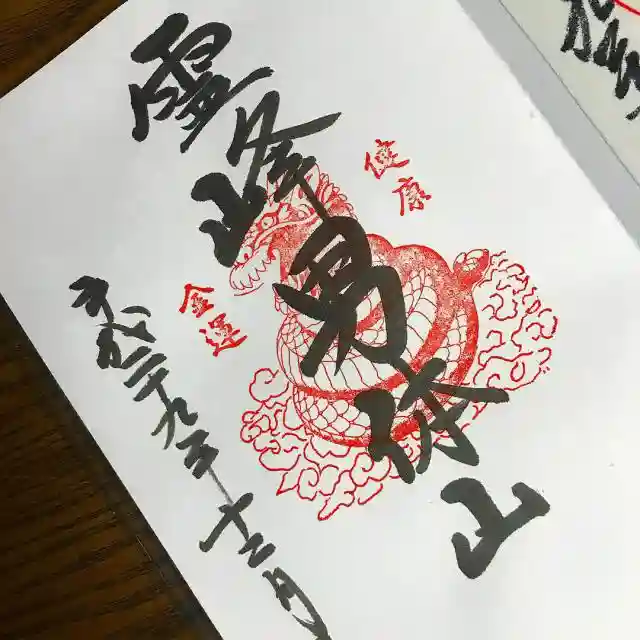 健康
霊峰男体山
金運
平成二十九年十二月